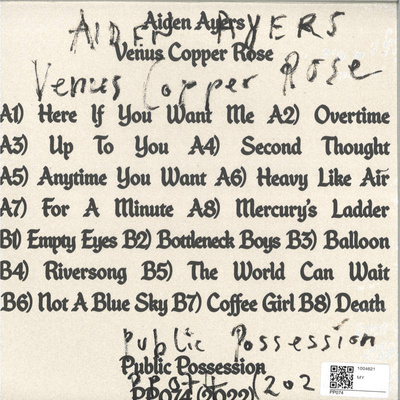 Aiden Ayers
AIDEN AYERS
Venus Copper Rose
Venus Copper Rose
A1) Here If You Want Me A2) Overtime
A3) Up To You A4) Second Thought
A5) Anytime You Want A6) Heavy Like Air
A7) For A Minute A8) Mercury's Ladder
B1) Empty Eyes B2) Bottleneck Boys B3) Balloon
B4) Riversong B5) The World Can Wait
B6) Not A Blue Sky B7) Coffee Girl B8) Death
Public Possession
Public Possession
PP074 (2022)
PP074 (202
1004621
MY
PP074